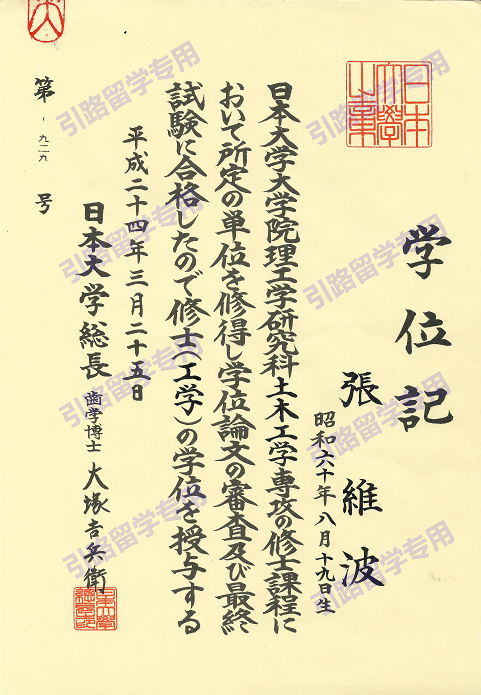 日本
大學
之章
学位記
張維波
昭和六十年八月十九日生
日本大学大学院理工学研究科土木工学専攻の修士課程に
おいて所定の単位を修得し学位論文の審査及び最終
試験に合格したので修士(工学)の学位を授与する
平成二十四年三月二十五日
日本大学総長 歯学博士 大塚吉兵衛
第一九二九号
引路留学专用
引路留学专用
引路留学专用
引路留学专用
引路留学专用
引路留学专用
引路留学专用
引路留学专用